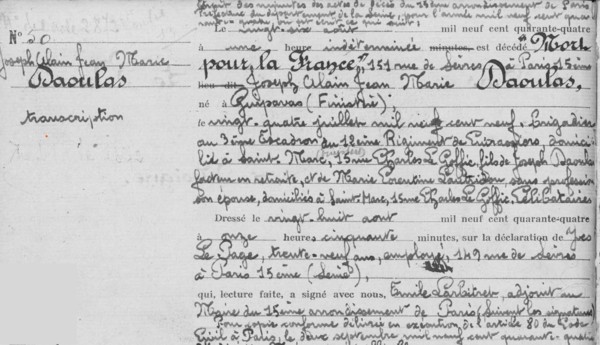 Extrait des minutes des actes de décès du 15ème arrondissement de Paris
Préfecture du département de la Seine, pour l'année mil neuf cent quarante
Le vingt-six août mil neuf cent quarante-quatre
N° 20
à une heure indéterminée minutes est décédé "Mort
Joseph Alain Jean Marie
pour la France", 151 rue de Sèvres à Paris 15ème
Daoulas
lieu dit Joseph Alain Jean Marie Daoulas,
né à Guipavas (Finistère),
transcription
le vingt-quatre juillet mil neuf cent neuf. Brigadier
au 3ème Escadron du 12ème Régiment de Cuirassiers, domici
lié à Saint-Marc, 15 rue Charles Le Goffic, fils de Joseph Daoulas
facteur en retraite, et de Marie Corentine sans profession
son épouse, domiciliés à Saint-Marc, 15 rue Charles Le Goffic, Célibataire
Dressé le vingt-huit août mil neuf cent quarante-quatre
à onze heures cinquante minutes, sur la déclaration de Yves
Le Page, trente-neuf ans, employé, 149 rue de Sèvres
à Paris 15ème (Seine),
qui, lecture faite, a signé avec nous, Emile adjoint au
Maire du 15ème arrondissement de Paris (suivent les signatures)
Pour copie conforme délivrée en exécution de l'article 80 du Code
Civil à Paris, le deux septembre mil neuf cent quarante-quatre